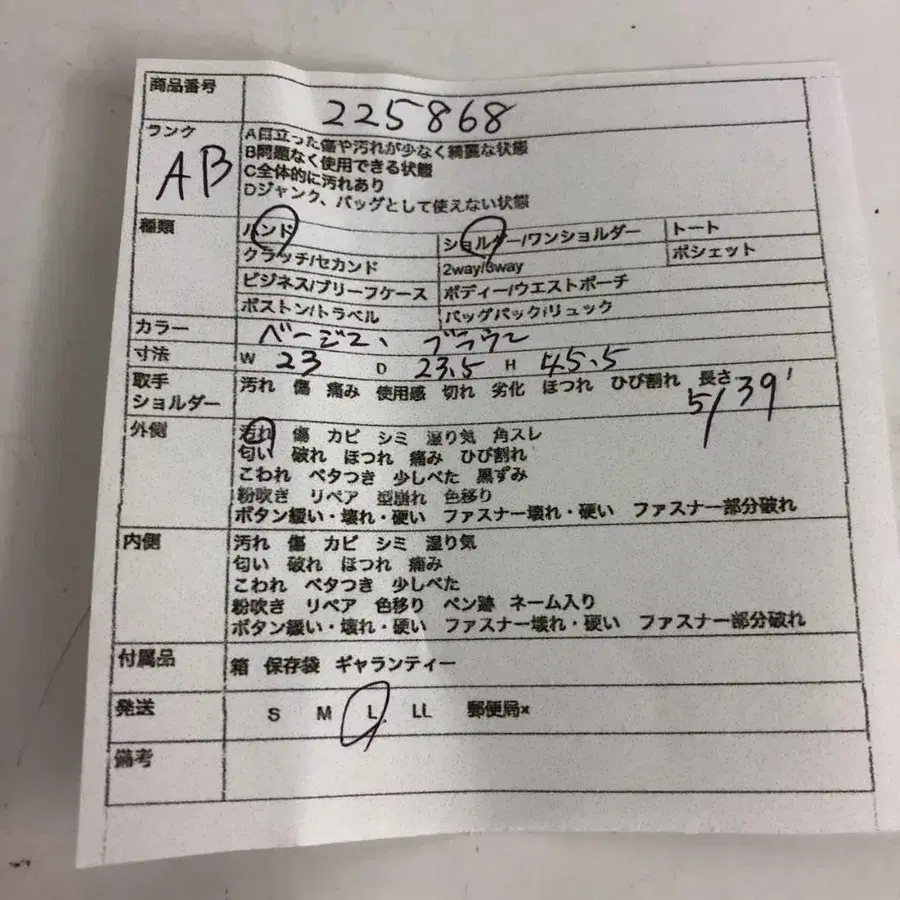 商品番号 225868
ランク AB
A目立った傷や汚れが少なく綺麗な状態
B問題なく使用できる状態
C全体的に汚れあり
Dジャンク、バッグとして使えない状態
種類 ハンド ショルダー/ワンショルダー トート
クラッチ/セカンド 2way/3way ポシェット
ビジネス/ブリーフケース ボディー/ウエストポーチ
ボストン/トラベル バッグパック/リュック
カラー ベージュ、ブラウン
寸法 W 23 D 23.5 H 45.5
取手 ショルダー 汚れ 傷 痛み 使用感 切れ 劣化 ほつれ ひび割れ 長さ
51 39
外側 汚れ 傷 カビ シミ 湿り気 角スレ
匂い 破れ ほつれ 痛み ひび割れ
こわれ ベタつき 少しべた 黒ずみ
粉吹き リペア 型崩れ 色移り
ボタン緩い・壊れ・硬い ファスナー壊れ・硬い ファスナー部分破れ
内側 汚れ 傷 カビ シミ 湿り気
匂い 破れ ほつれ 痛み
こわれ ベタつき 少しべた
粉吹き リペア 色移り ペン跡 ネーム入り
ボタン緩い・壊れ・硬い ファスナー壊れ・硬い ファスナー部分破れ
付属品 箱 保存袋 ギャランティー
発送 S M L LL 郵便局×
備考